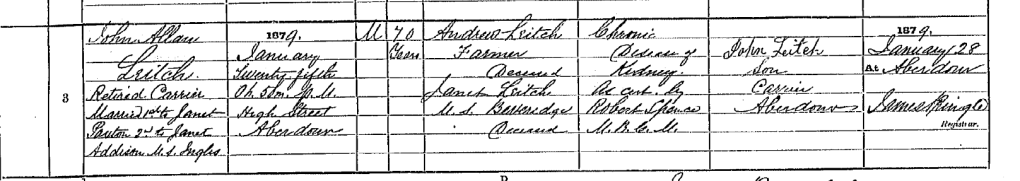 3
John Allan
Leitch.
Retired Carrier
Married 1st to Janet
Paxton 2nd to Janet
Addison M.S. Inglis
1879.
January
Twenty fifth
0h. 50m. P.M.
High Street
Aberdour
M
70
Years
Andrew Leitch
Farmer
Deceased
Janet Leitch
M.S.
Deceased
Chronic
Disease of
Kidney.
As cert. by
Robert Spence
M.B.C.M.
John Leitch
Son
Carrier
Aberdour
1879.
January 28
At Aberdour
James Pringle
Registrar.